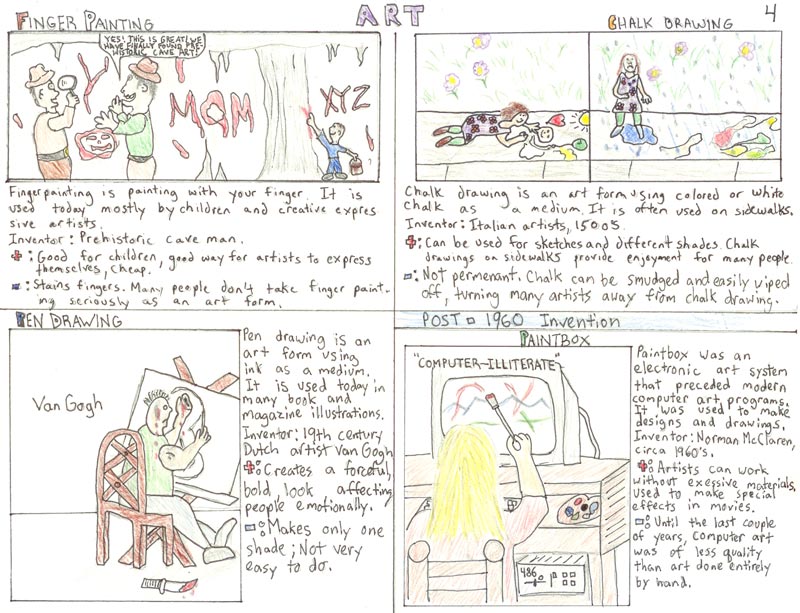 ART
4
FINGER PAINTING
YES! THIS IS GREAT! WE
HAVE FINALLY FOUND PRE-
HISTORIC CAVE ART!
Y
MOM
XYZ
Fingerpainting is painting with your finger. It is
used today mostly by children and creative expres
sive artists.
Inventor: Prehistoric cave man.
+: Good for children, good way for artists to express
themselves, cheap.
-: Stains fingers. Many people don't take finger paint-
ing seriously as an art form.
CHALK DRAWING
Chalk drawing is an art form using colored or white
chalk as a medium. It is often used on sidewalks.
Inventor: Italian artists, 1500s.
+: Can be used for sketches and different shades. Chalk
drawings on sidewalks provide enjoyment for many people.
-: Not permenant. Chalk can be smudged and easily wiped
off, turning many artists away from chalk drawing.
PEN DRAWING
Van Gogh
Pen drawing is an
art form using
ink as a medium.
It is used today in
many book and
magazine illustrations.
Inventor: 19th century
Dutch artist Van Gogh
+: Creates a forceful,
bold, look affecting
people emotionally.
-: Makes only one
shade; Not very
easy to do.
POST-1960 Invention
PAINTBOX
"COMPUTER-ILLITERATE"
486
Paintbox was an
electronic art system
that preceded modern
computer art programs.
It was used to make
designs and drawings.
Inventor: Norman McClaren,
circa 1960's.
+: Artists can work
without exessive materials,
used to make special
effects in movies.
-: Until the last couple
of years, Computer art
was of less quality
than art done entirely
by hand.